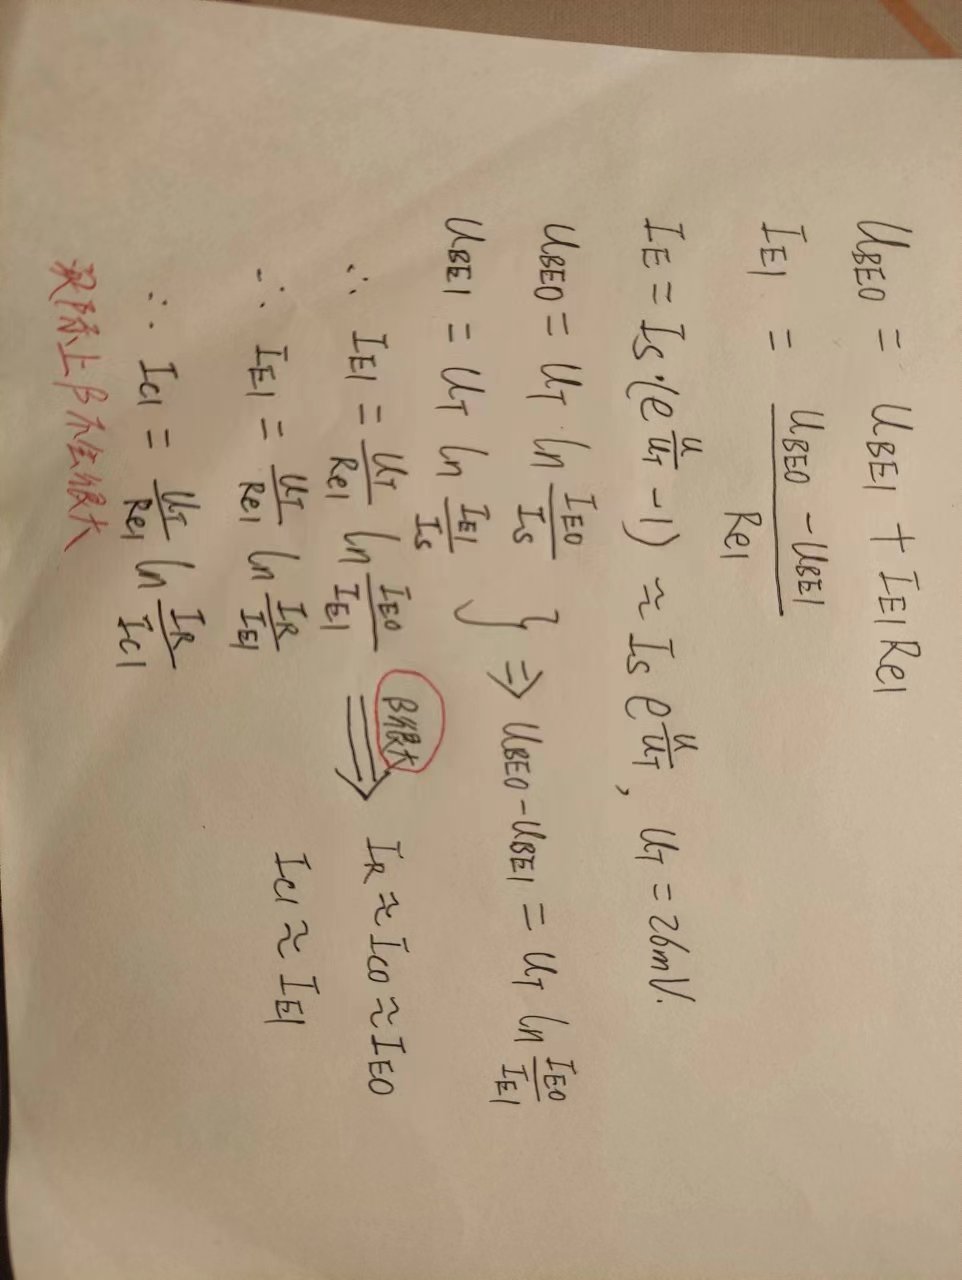 U_BE0 = U_BE1 + I_E1 Re1
I_E1 = (U_BE0 - U_BE1) / Re1
I_E = I_S·(e^(U/U_T) - 1) ≈ I_S e^(U/U_T), U_T = 26mV.
U_BE0 = U_T ln (I_E0 / I_S)
U_BE1 = U_T ln (I_E1 / I_S)
} ⇒ U_BE0 - U_BE1 = U_T ln (I_E0 / I_E1)
∴ I_E1 = (U_T / Re1) ln (I_E0 / I_E1) β很大 ⇒ I_R ≈ I_C0 ≈ I_E0
I_C1 ≈ I_E1
∴ I_E1 = (U_T / Re1) ln (I_R / I_E1)
∴ I_C1 = (U_T / Re1) ln (I_R / I_C1)
实际上β不会很大